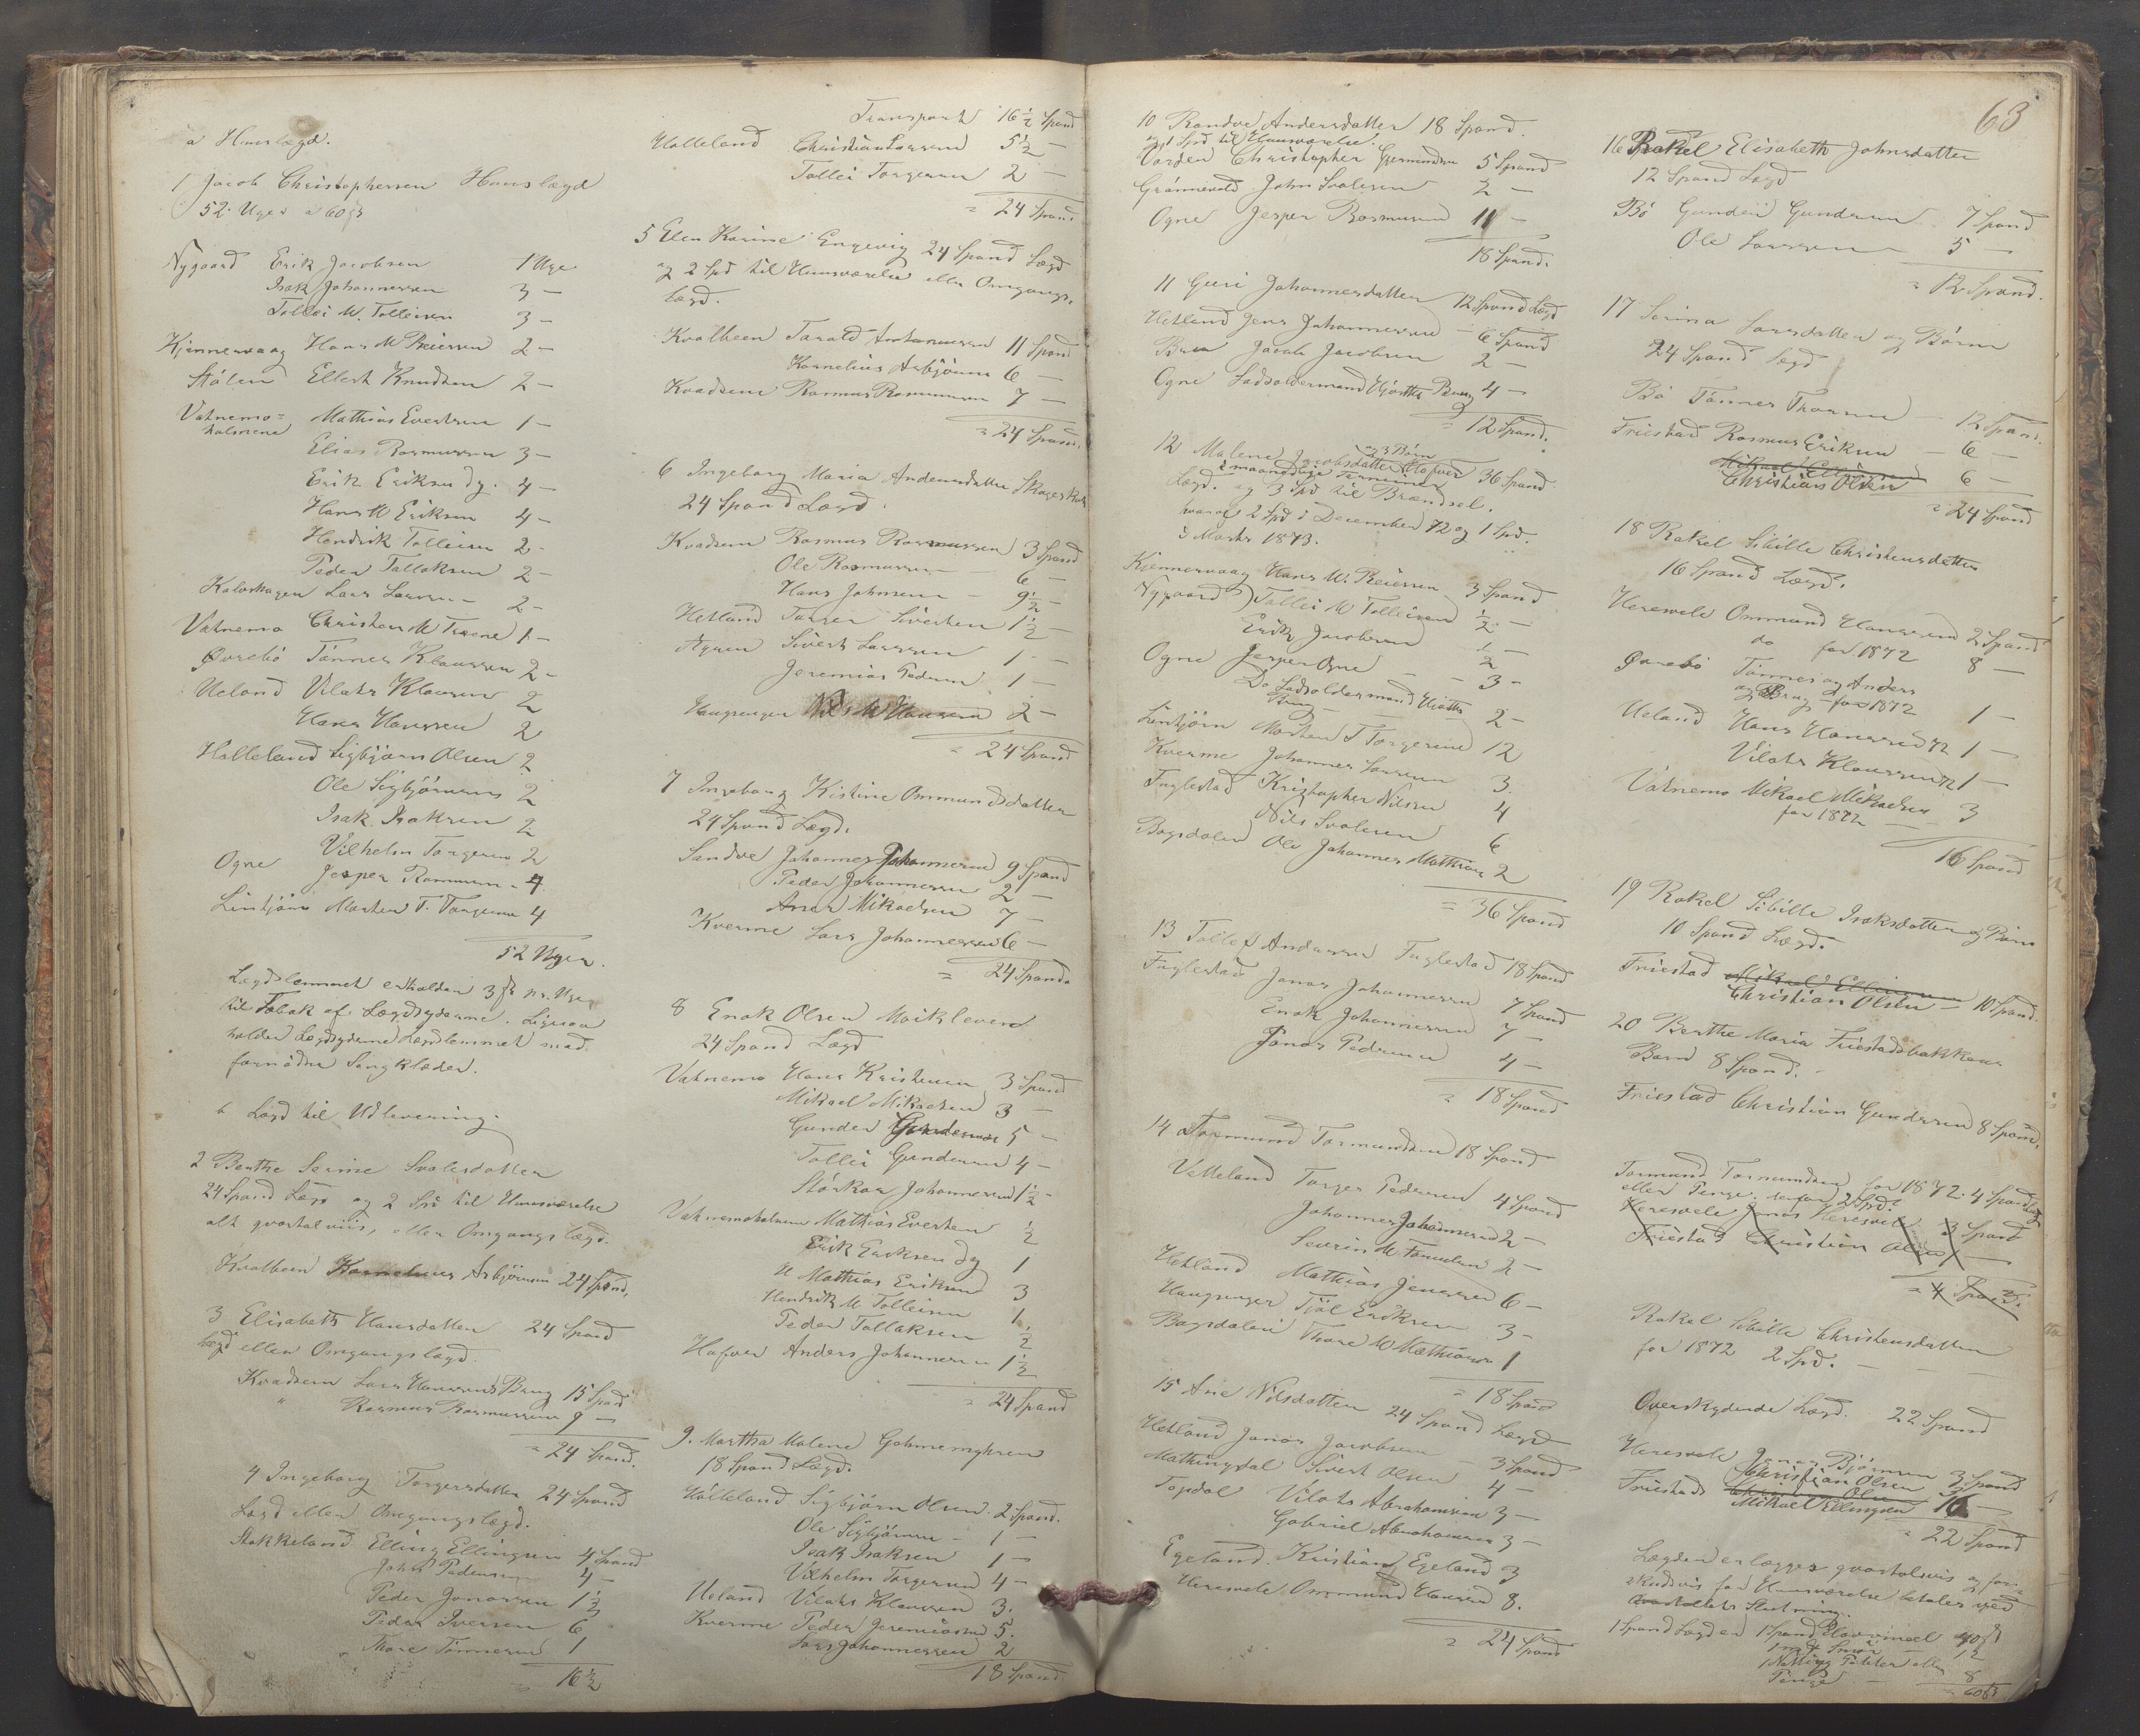 a Huuslægd.
1 Jacob Christophersen Huuslægd
52 Uger a 60 ß
Nygaard Erik Jacobsen 1 Uge
Isak Johannessen 3 —
Tollei M. Tolleisen 3 —
Kjønnervaag Hans M Reiersen 2 —
Stölen Ellert Knudsen 2 —
Vatnemo= Mathias Evertsen 1 —
holmene
Elias Rasmussen 3 —
Erik Eriksen dy. 4 —
Hans M Eriksen 4 —
Hendrik Tolleisen 2 -
Peder Tollaksen 2 —
Kalvshagen Lars Larsen - 2 -
Vatnemo Christen M Tranet 1 —
Øvrebö Tönnes Klaussen 2 -
Ueland Vilats Klausen 2
Hans Hanssen 2
Holleland Sigbjörn Olsen 2
Ole Sigbjörnsen 2
Isak Isaksen 2
Vilhelm Torgersen 2
Ogne Jesper Rasmussen - 4
Lintjörn Morten T. Torgersen 4
52 Uger.
Lægdslemmet erholder 3 ß pr. Uge
til Tobak af Lægdsyderne. Ligesaa
holder Lægdsyderne Lægdslemmet med
fornödne Sengklæder.
b Lægd til Udlevering.
2 Berthe Serine Svalesdatter
24 Spand Lægd og 2 Spd til Huusværelse
alt qvartalviis, eller Omgangslægd.
Kvalbeen Kornelius Asbjörnsen 24 Spand,
3 Elisabeth Hansdatter 24 Spand
Lægd eller Omgangslægd.
Kvadsem Lars Hanssens Brug 15 Spand
" Rasmus Rasmussen 9 —
= 24 Spand.
4 Ingeborg Torgersdatter 24 Spand
Lægd eller Omgangslægd.
Stokkeland Elling Ellingsen 4 Spand
John Pedersen 4 —
Peder Jonassen 1½
Peder Iversen 6
Thore Tönnesen 1
16½
Transport 16½ Spand
Holleland Christian Larsen 5½ —
Tollei Torgersen 2 —
= 24 Spand
5 Elen Karine Engevig 24 Spand Lægd
og 2 Spd til Huusværelse eller Omgangs-
lægd.
Kvalbeen Tarald Antonsen 11 Spand
Kornelius Asbjörnsen 6 —
Kvadsem Rasmus Rasmussen 7 —
= 24 Spand.
6 Ingeborg Maria Andersdatter
24 Spand Lægd.
Kvadsem Rasmus Rasmussen 3 Spand
Ole Rasmussen 6 —
Hans Johnsen — 9½ —
Hetland Torger Sivertsen 1½ —
Agnen Sivert Larsen 1 —
Jeremias Pedersen 1 —
Haugsenger Nils M Hansen 2 —
= 24 Spand
7 Ingeborg Kistine Ommundsdatter
24 Spand Lægd.
Sandve Johannes Johannessen 9 Spand
Peder Johannessen 2 —
Anar Mikaelsen 7 —
Kverme Lars Johannessen 6 —
= 24 Spand
8 Enok Olsen
24 Spand Lægd
Vatnemo Hans Kristensen 3 Spand
Mikael Mikaelsen 3 —
Gunder Gundersen 5 —
Tollei Gundersen 4 —
Störker Johannessen 1½ -
Vatnemoholmene Mathias Evertsen ½
Erik Eriksen dy 1
H Mathias Eriksen 3
Hendrik M Tolleisen 1.
Peder Tollaksen ½
Hafver Anders Johannessen 1½
= 24 Spand
9. Martha Malene
18 Spand Lægd.
Holleland Sigbjörn Olsen 2 Spand.
Ole Sigbjörnsen - 1 —
Isak Isaksen 1 —
Vilhelm Torgersen 4 —
Ueland Vilats Klaussen 3.
Kverme Peder Jeremiassen 5.
Lars Johannessen 2
18 Spand
63
10 Randve Andersdatter 18 Spand.
og 1 Spd til Huusværelse.
Varden Christopher Gjermundsen 5 Spand
Grönnevold John Svalesen 2 —
Ogne Jesper Rasmussen 11 —
18 Spand.
11 Guri Johannesdatter 12 Spand Lægd
Hetland Jens Johannessen — 6 Spand
Brua Jacob Jacobsen 2 —
Ogne Ladsoldermand Hjorths Brug 4 —
= 12 Spand.
12 Malene Jacobsdatter og 3 Börn Hafver 36 Spand
i maanedlige Terminer
Lægd. og 3 Spd til Brændsel.
hvoraf 2 Spd i December 72 og 1 Spd.
i Marts 1873.
Kjönnervaag Hans M. Reiersen 3 Spand
Nygaard Tollei M Tolleisen ½ —
Erik Jacobsen ½ —
Ogne Jesper Ogne — 3 -
Do Ladsoldermand Hjorths 2 -
Brug
Lintjörn Morten T Torgersen 12
Kverme Johannes Larsen 3.
Fuglestad Kristopher Nilsen 4
Nils Svalesen 6
Bogsdalen Ole Johannes Mathias 2
= 36 Spand
13 Tollef Andersen Fuglestad 18 Spand
Fuglestad Jonas Johannessen 7 Spand
Enok Johannessen 7 —
Jonas Pedersen 4 —
= 18 Spand
14 Tormund Tormundsen 18 Spand
Vetteland Torger Pedersen 4 Spand
Johannes Johannessen 2 —
Severin M 2 —
Hetland Mathias Jenssen 6 —
Haugsenger Tjöl Eriksen 3 -
Bogsdalen Thore M Mathiassen 1
= 18 Spand
15 Ane Nilsdatter 24 Spand Lægd
Hetland Jonas Jacobsen — 3 Spand
Mathingsdal Sivert Olsen 4 —
Topdal Vilats Abrahamsen 3 —
Gabriel Abrahamsen 3 —
Egeland. Kristian Egeland 3
Herrevele Ommund Hansen 8.
= 24 Spand
16 Rakel Elisabeth Johnsdatter
12 Spand Lægd
Bö Gunder Gundersen 7 Spand
Ole Larsen — 5 —
= 12 Spand.
17 Serina Larsdatter og Börn
24 Spand Lægd
Bö Tönnes Thorsen — 12 Spand.
Friestad Rasmus Eriksen — 6 —
Mikael Ellingsen
Christian Olsen 6 —
= 24 Spand
18 Rakel Sibille Christensdatter
16 Spand Lægd.
Herevele Ommund Hanssen 2 Spand
do for 1872 8 —
Øvrebö Tönnes og Anders
Brug for 1872 1 —
Ueland Hans Hanssen 72 1 —
Vilats Klaussen 72 1 —
Vatnemo Mikael Mikaelsen 3
for 1872 —
16 Spand
19 Rakel Sibille Isaksdatter og Börn
10 Spand Lægd.
Friestad Mikael Ellingsen
Christian Olsen — 10 Spand.
20 Berthe Maria Friestadsbakkens
Barn 8 Spand.
Friestad Christian Gundersen 8 Spand,
Tormund Tormundsen for 1872. 4 Spand Lægd
eller Penge. derfor 2 Spd.
Herevele Jonas Herevele 3 Spand
Friestad Christian Olsen —
= 4 Spand.
Rakel Sibille Christensdatter
for 1872 2 Spd. —
Overskydende Lægd. 22 Spand
Herevele Jonas Björnsen 3 Spand
Christian Olsen 3
Friestad Christian Olsen
Mikael Ellingsen 16 —
= 22 Spand
Lægden erlægges qvartalsvis og
skudsvis for Huusværelse betales ved
Qvartalets Slutning.
1 Spand Lægd er 1 Spand Havremeel 40 ß
1 Smör 12
Poteter eller 8
Penge — = 60 ß